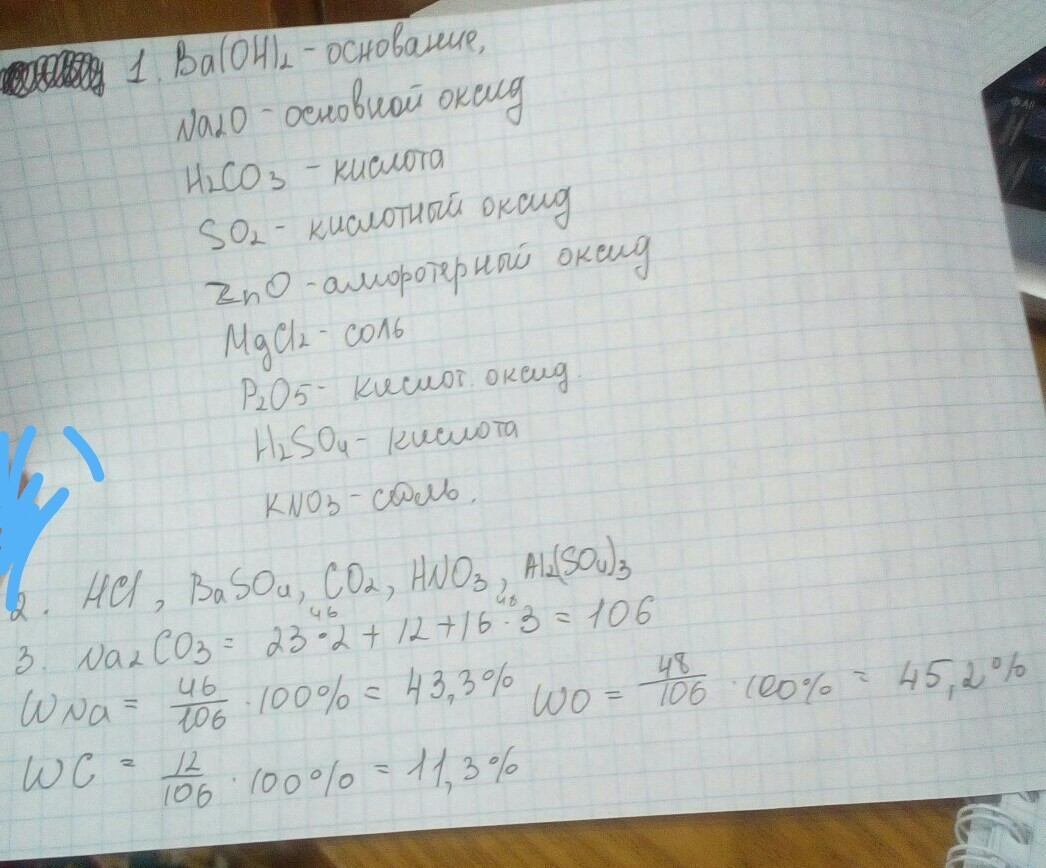 1. Ba(OH)2 - основание,
Na2O - основной оксид
H2CO3 - кислота
SO2 - кислотный оксид
ZnO - аморотерный оксид
MgCl2 - соль
P2O5 - кислот. оксид.
H2SO4 - кислота
KNO3 - соль.
2. HCl, BaSO4, CO2, HNO3, Al2(SO4)3
46 48
3. Na2CO3 = 23·2 + 12 + 16·3 = 106
WNa = 46/106 · 100% = 43,3% WO = 48/106 · 100% = 45,2%
WC = 12/106 · 100% = 11,3%